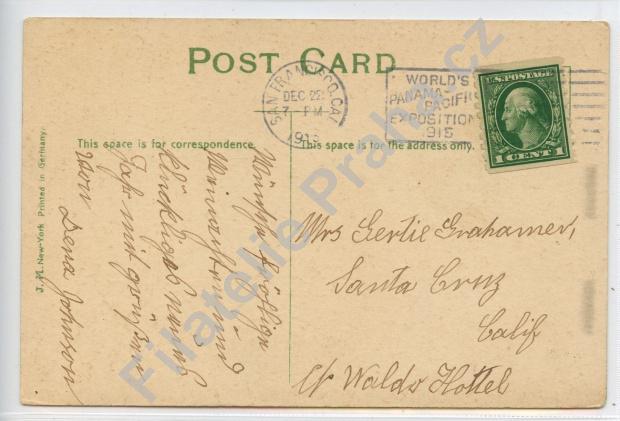 POST CARD
SAN FRANCISCO, CAL.
DEC 22
7 - PM
WORLD'S
PANAMA-
PACIFIC
EXPOSITION
1915
U.S. POSTAGE
1 CENT 1
This space is for correspondence.
This space is for the address only.
J. M. New-York Printed in Germany.
und
Jahr mit
von Dena Johnson
Mrs Gertie Grahamer,
Santa Cruz
Calif
c/o Waldo Hottel
Filatelie Praha.cz